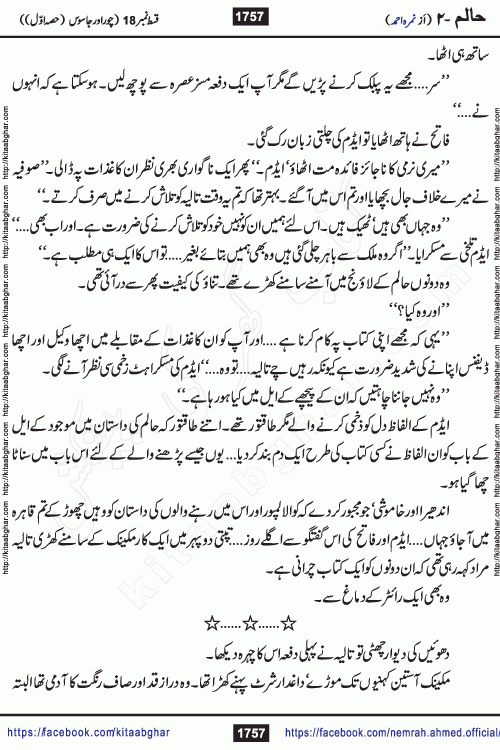 حالم -۲ (از نمرہ احمد)
1757
قسط نمبر 18 (چور اور جاسوس (حصہ اوّل))
ساتھ ہی اٹھا۔
’’سر.... مجھے یہ پبلک کرنے پڑیں گے مگر آپ ایک دفعہ مسز عصرہ سے پوچھ لیں۔ ہو سکتا ہے کہ انہوں
نے....‘‘
فاتح نے ہاتھ اٹھایا تو ایڈم کی چلتی زبان رک گئی۔
’’میری نرمی کا ناجائز فائدہ مت اٹھاؤ‘ ایڈم۔‘‘ پھر ایک ناگواری بھری نظر ان کاغذات پہ ڈالی۔ ’’صوفیہ
نے میرے خلاف جال بچھایا اور تم اس میں آ گئے۔ بہتر تھا کہ تم یہ وقت تالیہ کو تلاش کرنے میں صرف کرتے۔‘‘
’’وہ جہاں بھی ہیں‘ ٹھیک ہیں۔ اس لئے ہمیں ان کو نہیں خود کو تلاش کرنے کی ضرورت ہے۔ اور اب بھی....‘‘
ایڈم تلخی سے مسکرایا۔ ’’اگر وہ ملک سے باہر چلی گئی ہیں وہ بھی ہمیں بتائے بغیر.... تو اس کا ایک ہی مطلب ہے۔‘‘
وہ دونوں حالم کے لاؤنج میں آمنے سامنے کھڑے تھے۔ تناؤ کی کیفیت پھر سے در آئی تھی۔
’’اور وہ کیا؟‘‘
’’یہی کہ مجھے اپنی کتاب پہ کام کرنا ہے.... اور آپ کو ان کاغذات کے مقابلے میں اچھا وکیل اور اچھا
ڈیفنس اپنانے کی شدید ضرورت ہے کیونکہ رہیں چے تالیہ.... تو وہ....‘‘ ایڈم کی مسکراہٹ زخمی سی نظر آنے لگی۔
’’وہ نہیں جاننا چاہتیں کہ ان کے پیچھے کے ایل میں کیا ہو رہا ہے۔‘‘
ایڈم کے الفاظ دل کو زخمی کرنے والے مگر طاقتور تھے۔ اتنے طاقتور کہ حالم کی داستان میں موجود کے ایل
کے باب کو ان الفاظ نے کسی کتاب کی طرح ایک دم بند کر دیا... یوں جیسے پڑھنے والے کے لئے اس باب میں سناٹا
چھا گیا ہو۔
اندھیرا اور خاموشی‘ جو مجبور کر دے کہ کوالالمپور اور اس میں رہنے والوں کی داستان کو وہیں چھوڑ کے تم قاہرہ
میں آ جاؤ جہاں.... ایڈم اور فاتح کی اس گفتگو سے اگلے روز.... تپتی دوپہر میں ایک کار مکینک کے سامنے کھڑی تالیہ
مراد کہہ رہی تھی کہ ان دونوں کو ایک کتاب چرانی ہے۔
وہ بھی ایک رائٹر کے دماغ سے۔
☆......☆......☆
دھوئیں کی دیوار چھٹی تو تالیہ نے پہلی دفعہ اس کا چہرہ دیکھا۔
مکینک آستین کہنیوں تک موڑے‘ داغدار شرٹ پہنے کھڑا تھا۔ وہ دراز قد اور صاف رنگت کا آدمی تھا البتہ
https://facebook.com/kitaabghar
1757
https://facebook.com/nemrah.ahmed.official/
http://kitaabghar.com http://kitaabghar.com http://kitaabghar.com http://kitaabghar.com
http://kitaabghar.com http://kitaabghar.com http://kitaabghar.com http://kitaabghar.com